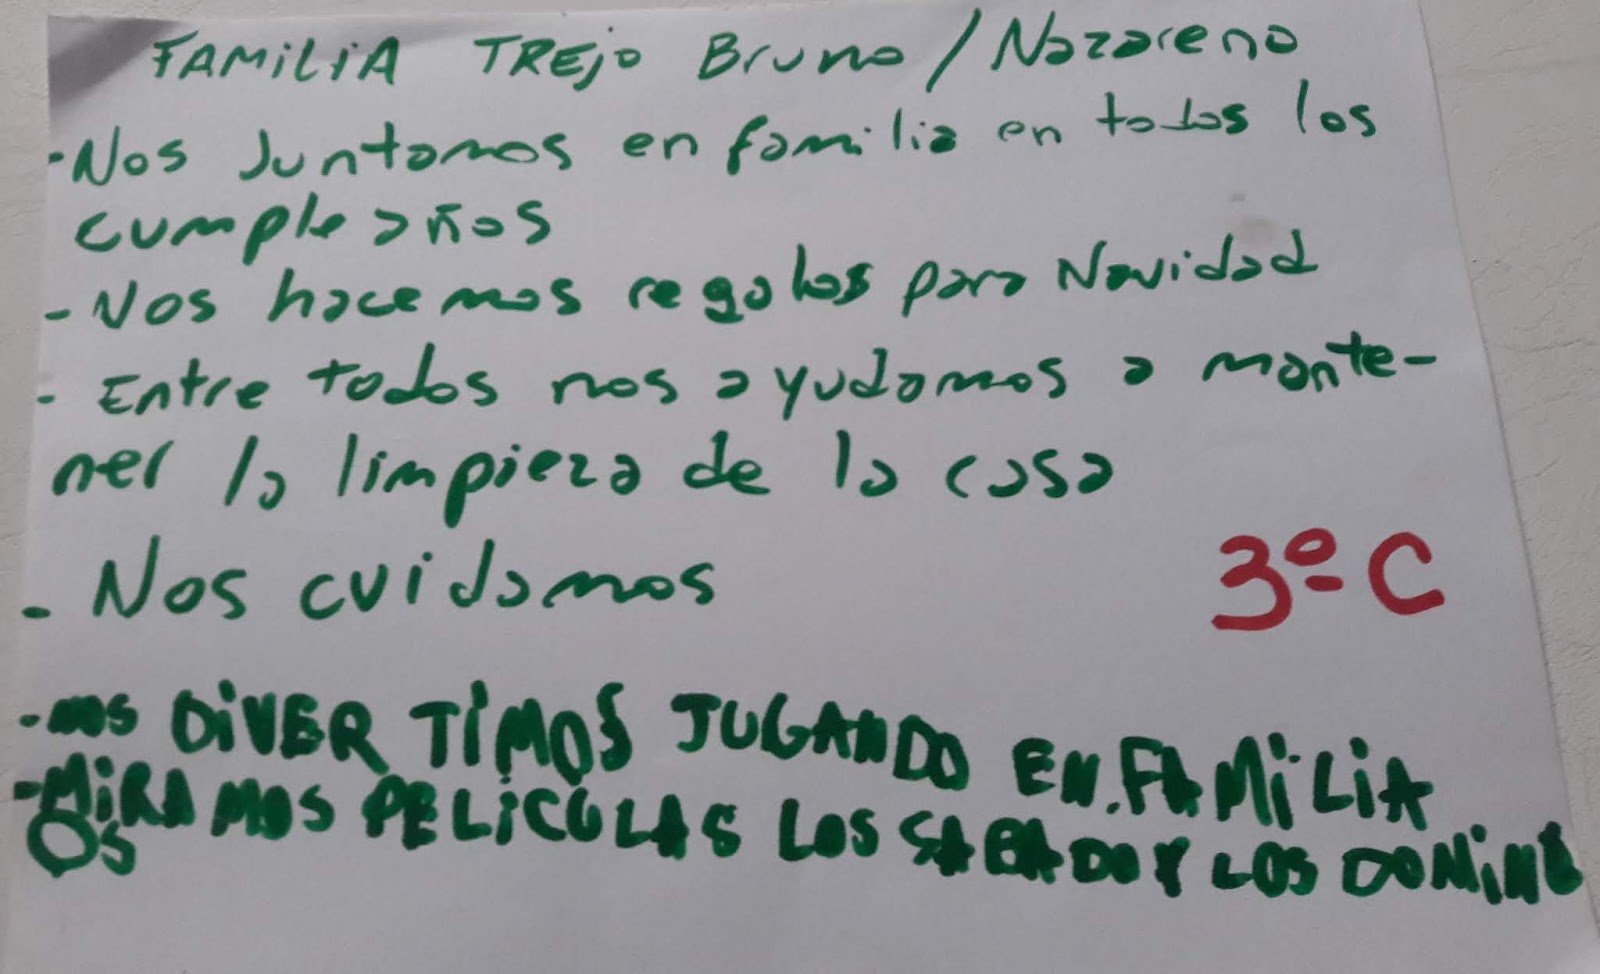 FAMILIA TREJO Bruno / Nazareno
- Nos Juntamos en familia en todos los
cumpleaños
- Nos hacemos regalos para Navidad
- Entre todos nos ayudamos a mante-
ner la limpieza de la casa
- Nos cuidamos
3º C
- nos DIVERTIMOS JUGANDO EN.FAMILIA
- MIRAMOS PELICULAS LOS SABADO Y LOS DOMING
OS